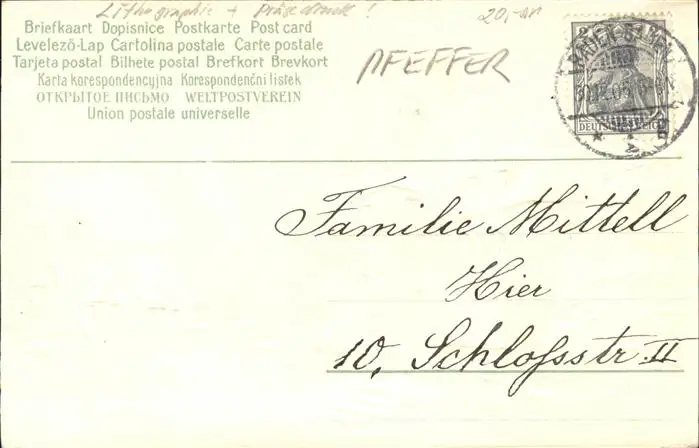 Lithographie + Prägedruck !
20,-
PFEFFER
Briefkaart Dopisnice Postkarte Post card
Levelezö-Lap Cartolina postale Carte postale
Tarjeta postal Bilhete postal Brefkort Brevkort
Karta korespondencyjna Korespondenční listek
ОТКРЫТОЕ ПИСЬМО WELTPOSTVEREIN
Union postale universelle
2
DEUTSCHES REICH
BADEN-BADEN
Familie Mittell
Hier
10, Schloſsstr. II